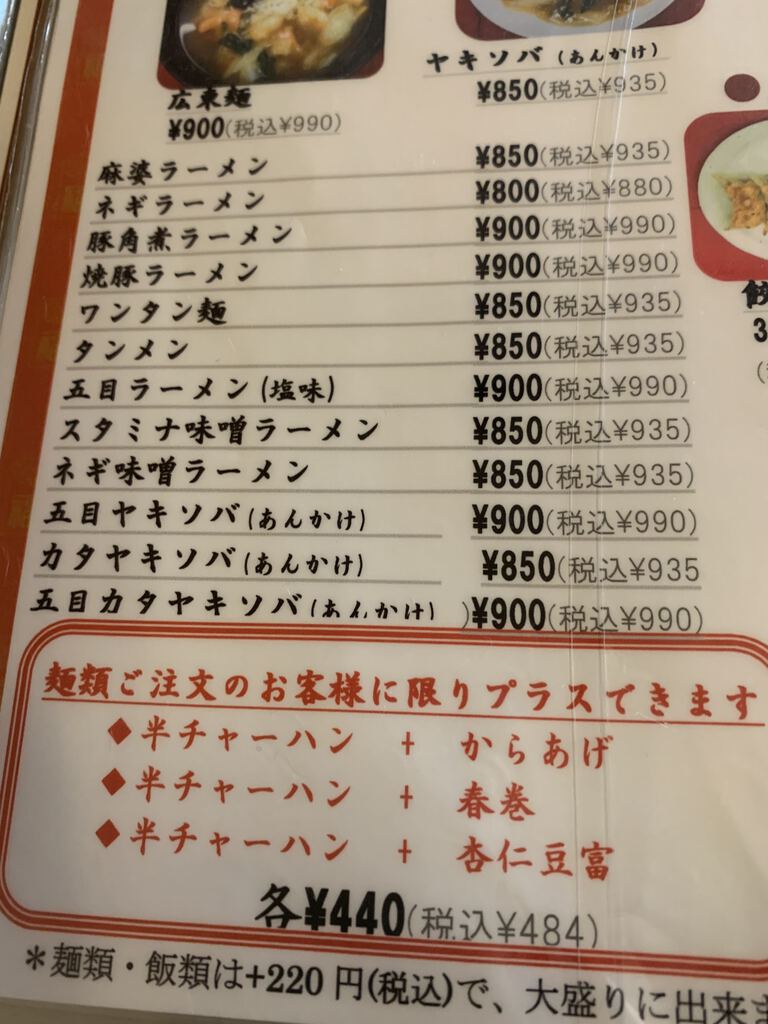 広東麺
¥900(税込¥990)
ヤキソバ(あんかけ)
¥850(税込¥935)
麻婆ラーメン ¥850(税込¥935)
ネギラーメン ¥800(税込¥880)
豚角煮ラーメン ¥900(税込¥990)
焼豚ラーメン ¥900(税込¥990)
ワンタン麺 ¥850(税込¥935)
タンメン ¥850(税込¥935)
五目ラーメン(塩味) ¥900(税込¥990)
スタミナ味噌ラーメン ¥850(税込¥935)
ネギ味噌ラーメン ¥850(税込¥935)
五目ヤキソバ(あんかけ) ¥900(税込¥990)
カタヤキソバ(あんかけ) ¥850(税込¥935
五目カタヤキソバ(あんかけ) )¥900(税込¥990)
麺類ご注文のお客様に限りプラスできます
◆半チャーハン + からあげ
◆半チャーハン + 春巻
◆半チャーハン + 杏仁豆富
各¥440(税込¥484)
*麺類・飯類は+220円(税込)で、大盛りに出来ま
3